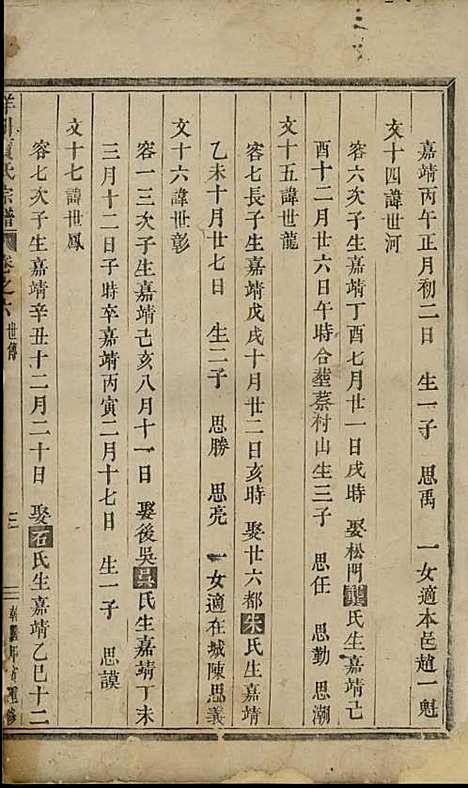 嘉靖丙午正月初二日 生一子 思禹 一女適本邑趙一魁
文十四諱世河
容六次子生嘉靖丁酉七月廿一日戌時 娶松門龔氏生嘉靖己
酉十二月廿六日午時合塟蔡村山生三子 思任 思勤 思潮
文十五諱世龍
容七長子生嘉靖戊戌十月廿二日亥時 娶廿六都朱氏生嘉靖
乙未十月廿七日 生二子 思勝 思亮 一女適在城陳思義
文十六諱世彰
容一三次子生嘉靖己亥八月十一日 娶後吳呂氏生嘉靖丁未
三月十二日子時卒嘉靖丙寅二月十七日 生一子 思謨
文十七諱世鳳
容七次子生嘉靖辛丑十二月二十日 娶石氏生嘉靖乙巳十二
氏宗譜 卷之六 世傳 三